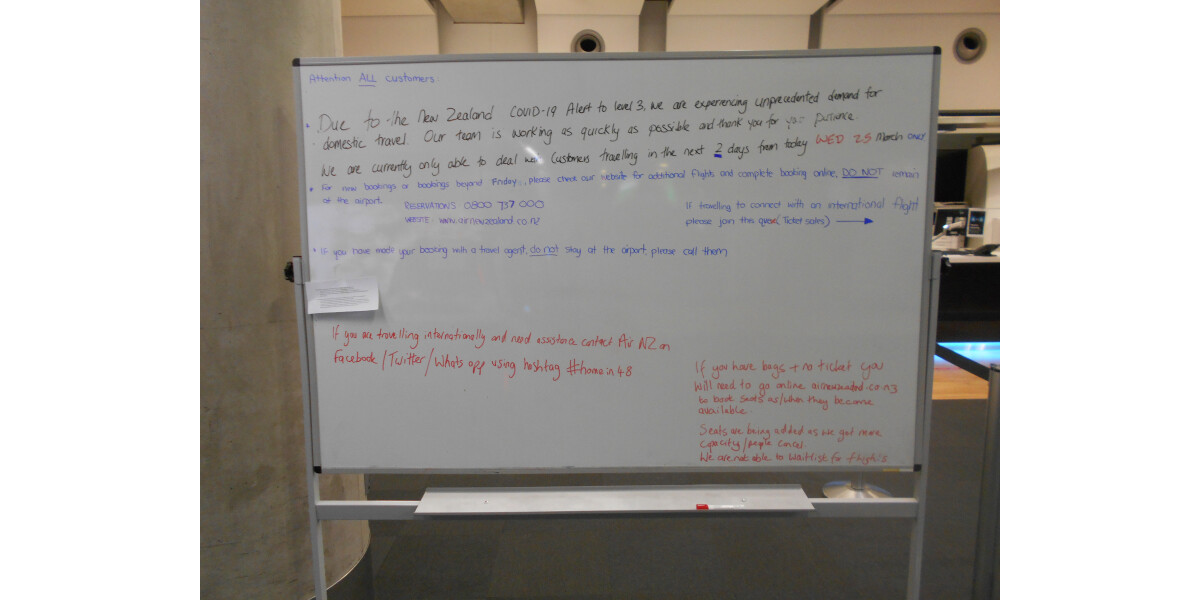 Attention ALL customers:
• Due to the New Zealand COVID-19 Alert to level 3, we are experiencing unprecedented demand for
domestic travel. Our team is working as quickly as possible and thank you for your patience.
We are currently only able to deal with customers travelling in the next 2 days from today WED 25 March ONLY
• For new bookings or bookings beyond Friday, please check our website for additional flights and complete booking online, DO NOT remain
at the airport.
RESERVATIONS 0800 737 000
WEBSITE: www.airnewzealand.co.nz
If travelling to connect with an international flight
please join this queue (Ticket sales) →
• If you have made your booking with a travel agent, do not stay at the airport, please call them
If you are travelling internationally and need assistance contact Air NZ on
Facebook/Twitter/Whats app using hashtag #homein48
If you have bags + no ticket you
will need to go online airnewzealand.co.nz
to book seats as/when they become
available.
Seats are being added as we get more
capacity/people cancel.
We are not able to waitlist for flights